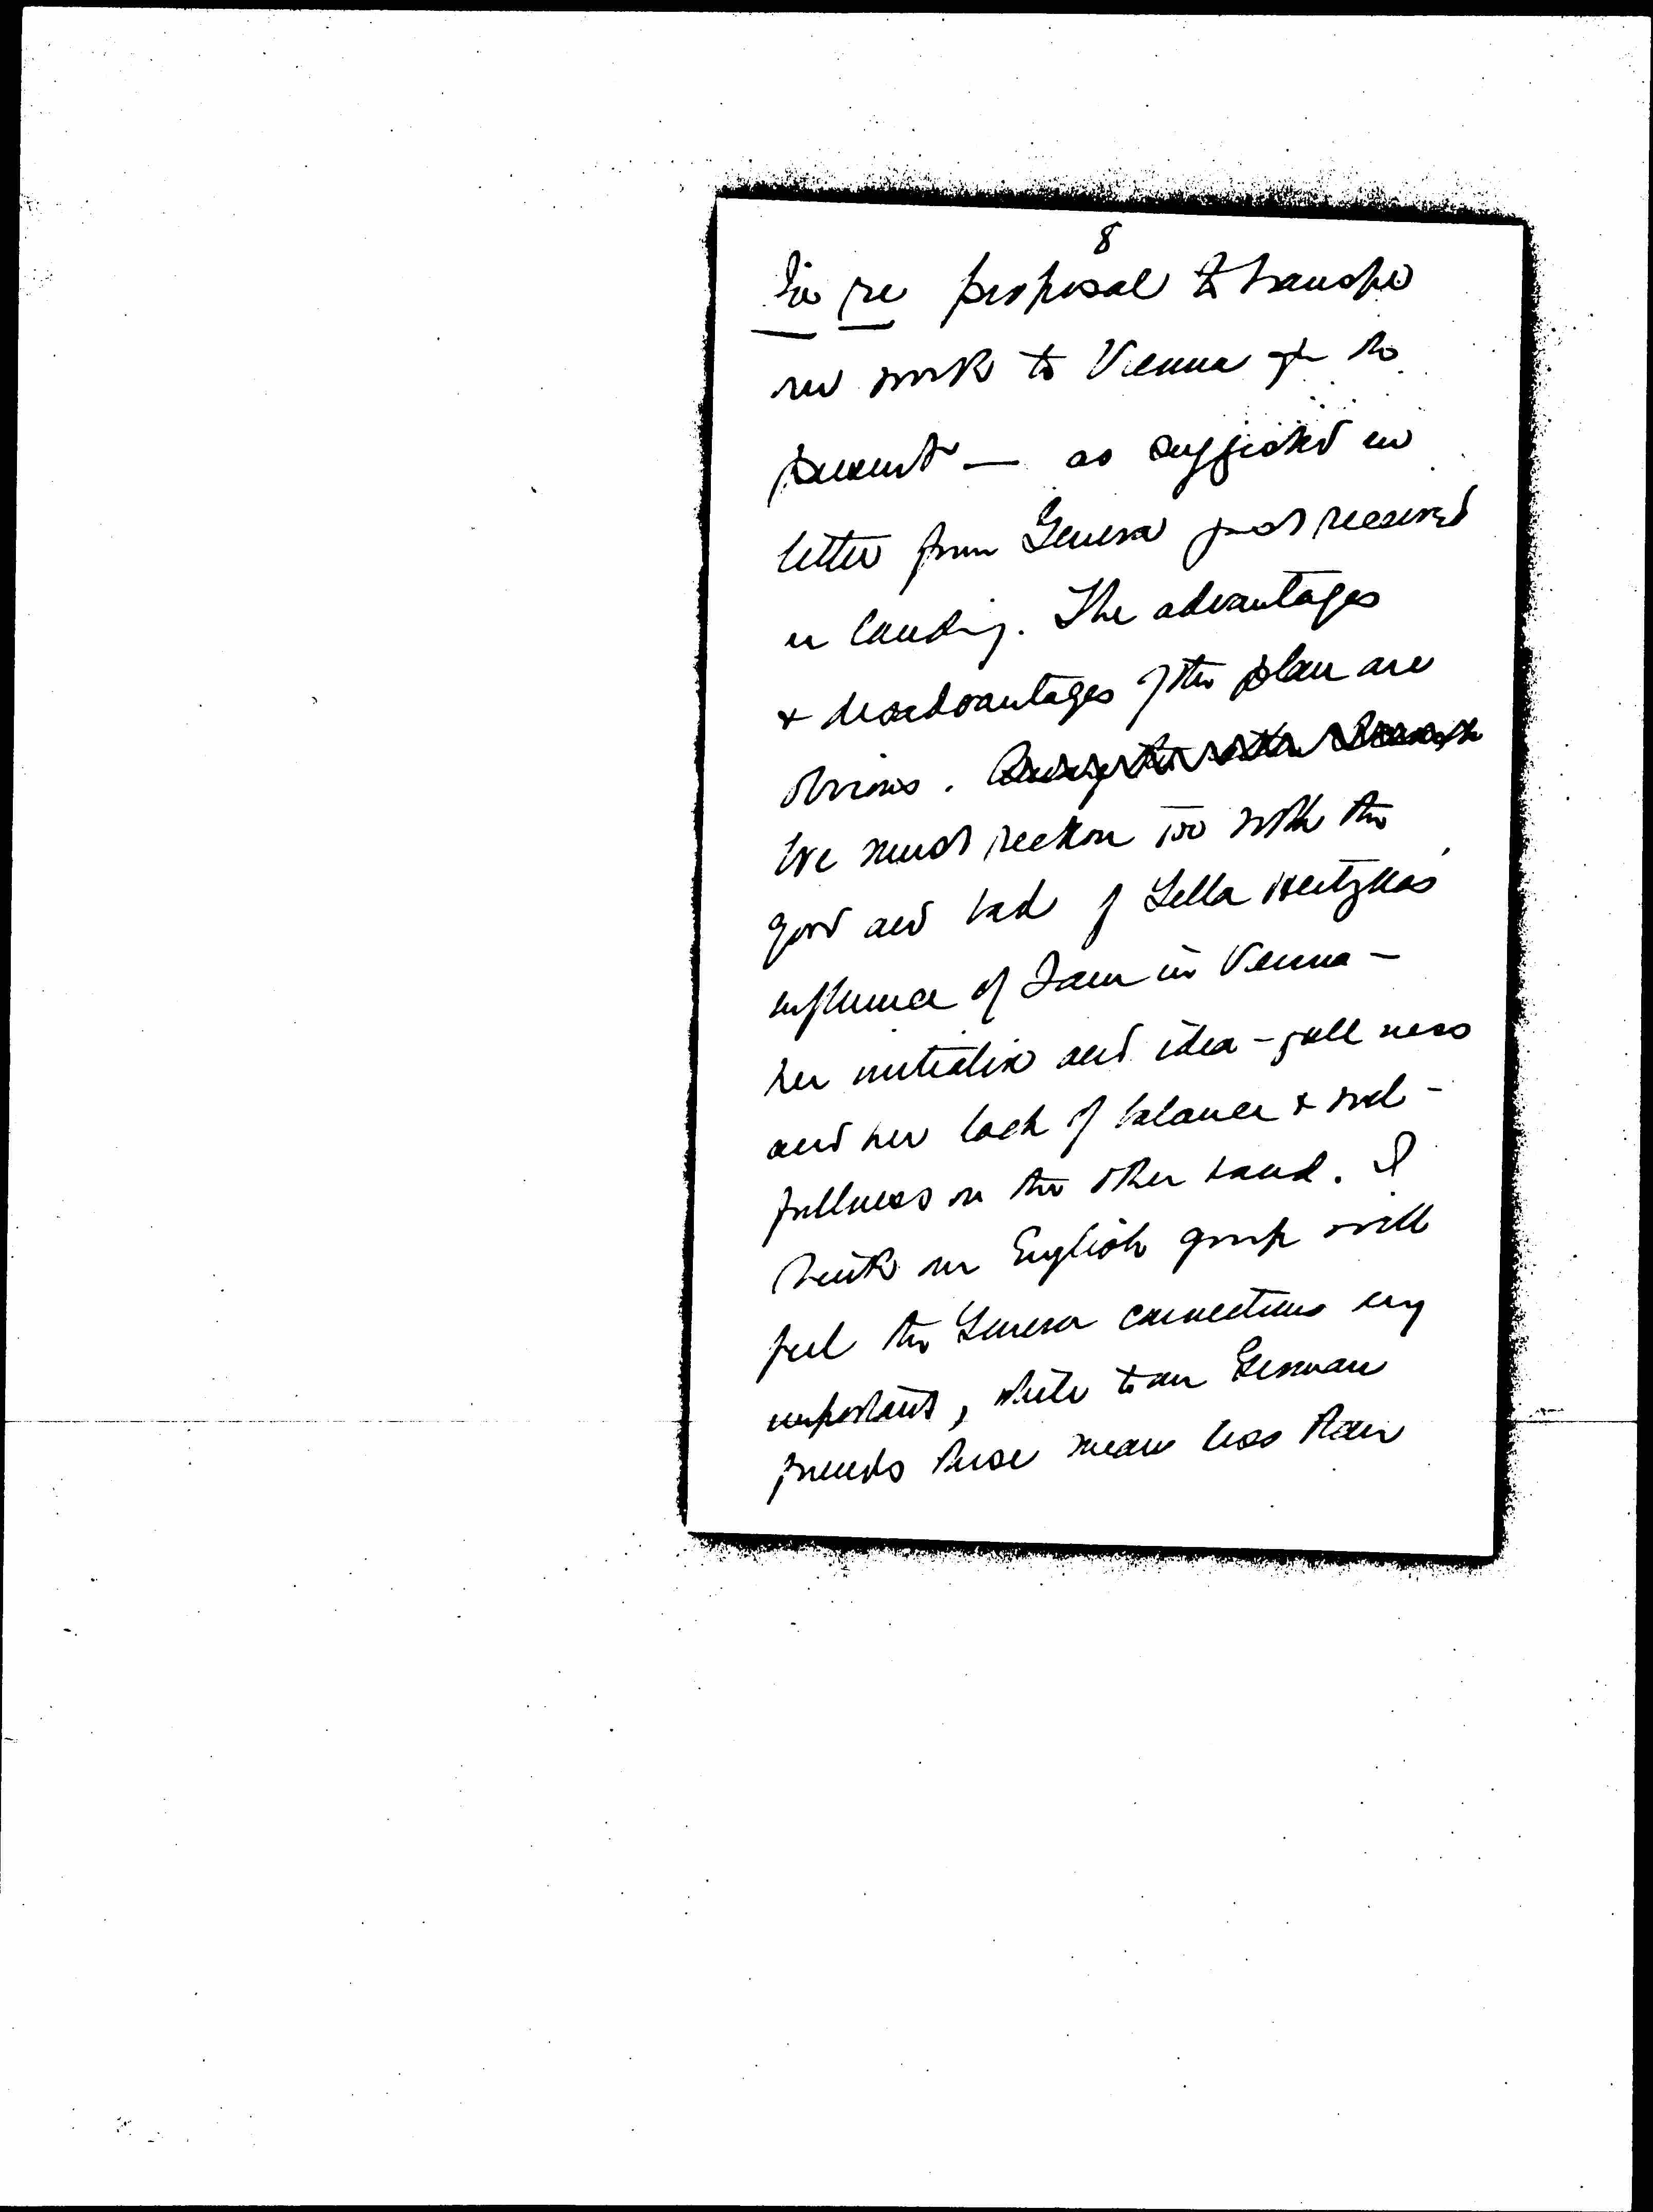 8
In re proposal to transfer
our work to Vienna for the
present — as suggested in
letter from Geneva just received
on landing. The advantages
& disadvantages of the plan are
obvious.
We must reckon too with the
good and bad of Yella Hertzka's
influence if I am in Vienna —
her initiative and idea-fullness
and her lack of balance & wil-
fullness on the other hand. I
think our English group will
feel the Geneva connections very
important, while to our German
friends these mean less than